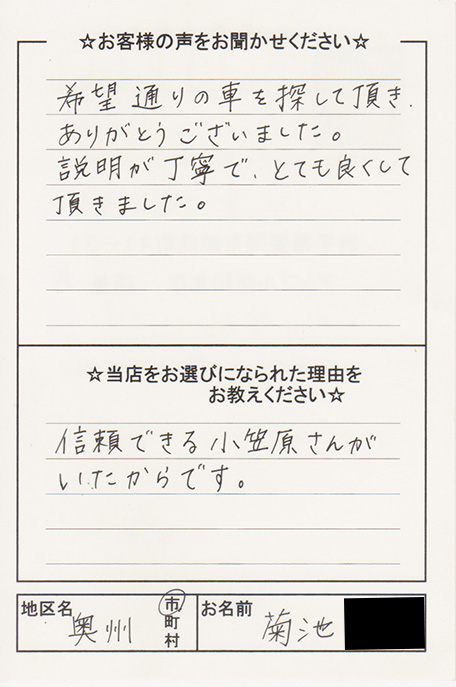 ☆お客様の声をお聞かせください☆
希望通りの車を探して頂き、
ありがとうございました。
説明が丁寧で、とても良くして
頂きました。
☆当店をお選びになられた理由を
お教えください☆
信頼できる小笠原さんが
いたからです。
地区名 奥州 市町村 お名前 菊池